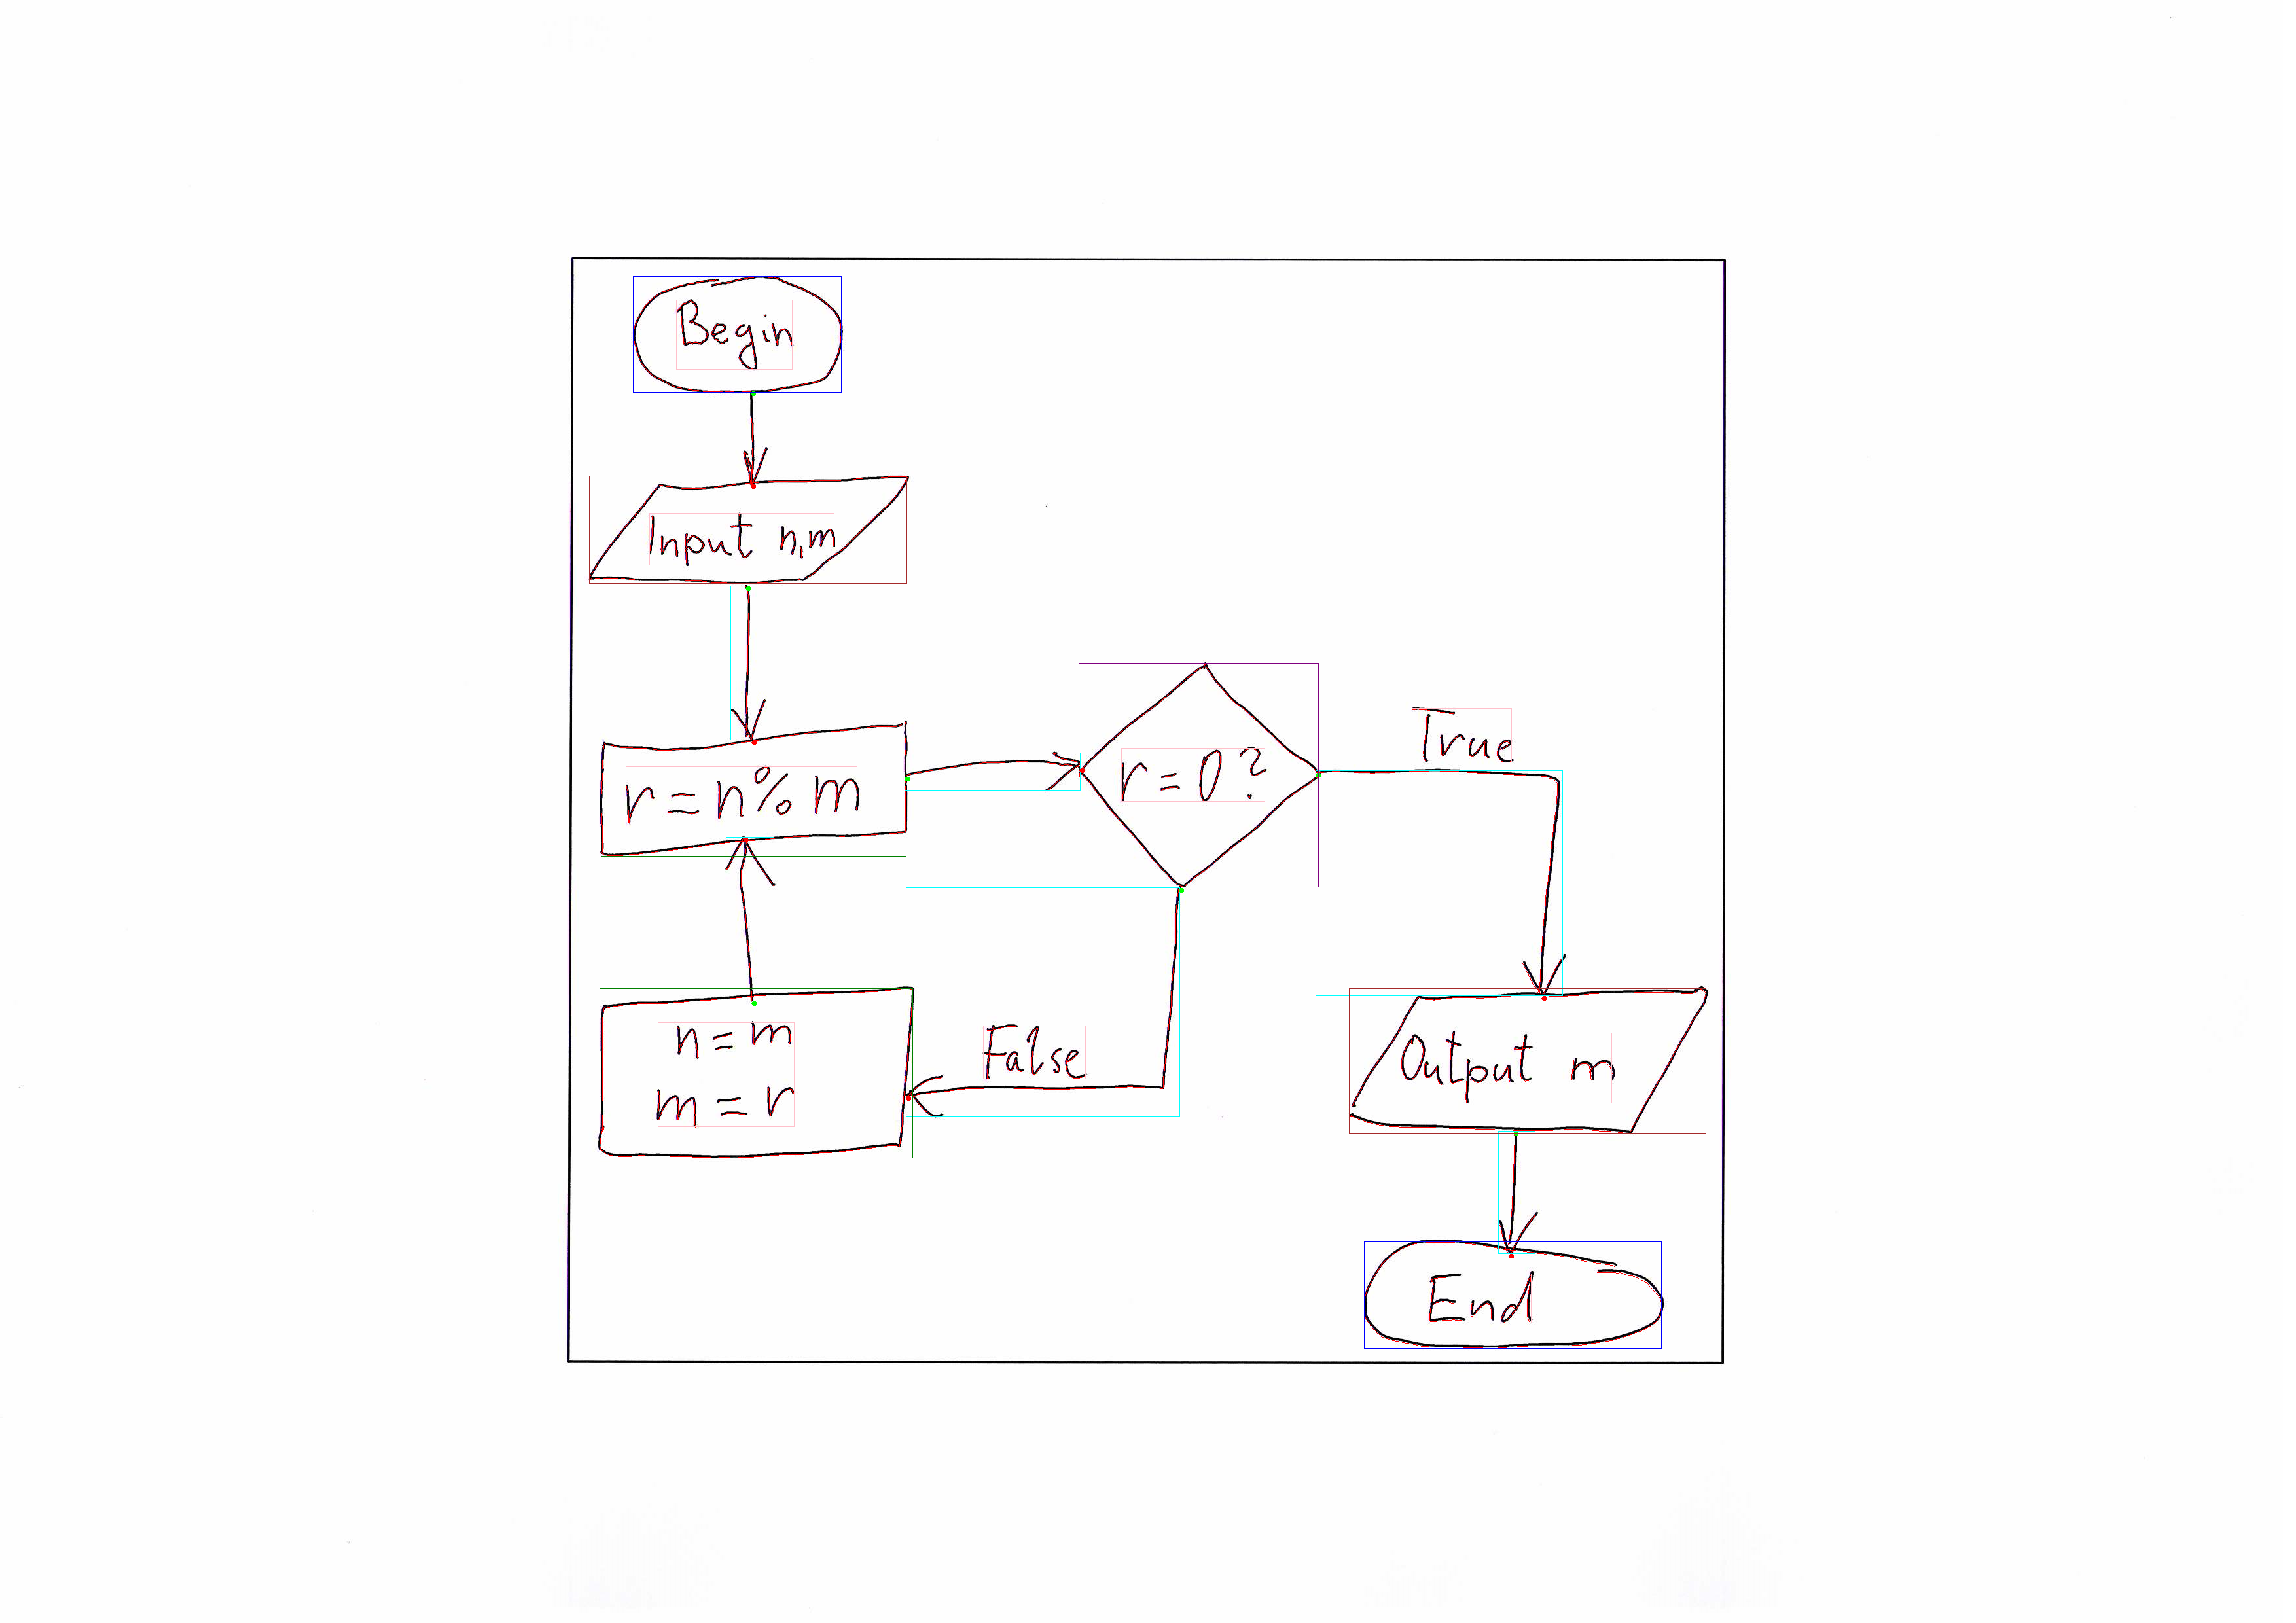 Begin
Input n,m
r=n%m
r=0?
True
n=m
m=r
False
Output m
End